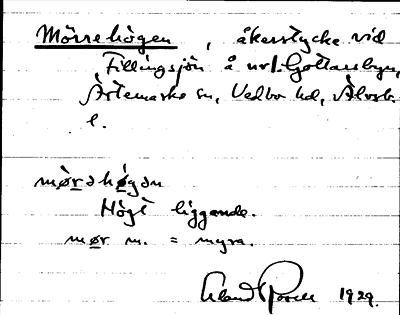 Mörrehögen, åkerstycke vid
Fillingsjön å
Ärtemarks sn, Vedbo hd, Älvsb.
l.
mørəhøgən
Högt liggande.
mør m. = myra.
1929.